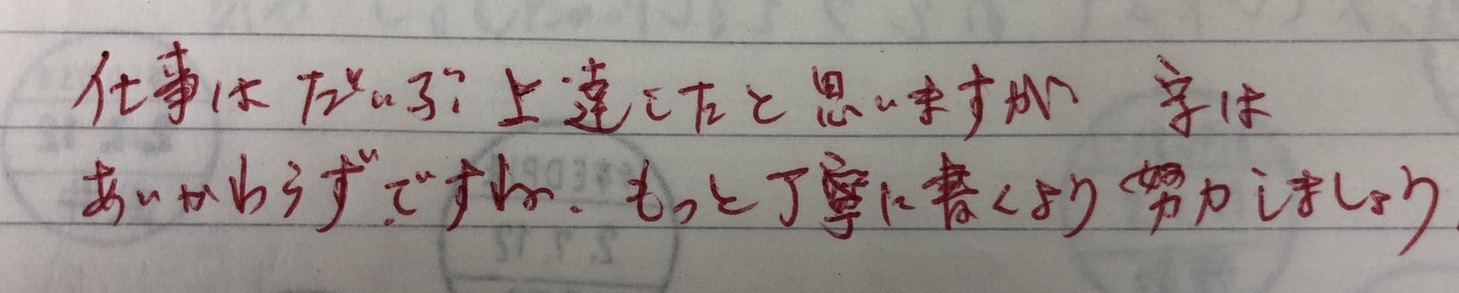 仕事はだいぶ上達したと思いますが 字は
あいかわらずですね。もっと丁寧に書くよう努力しましょう